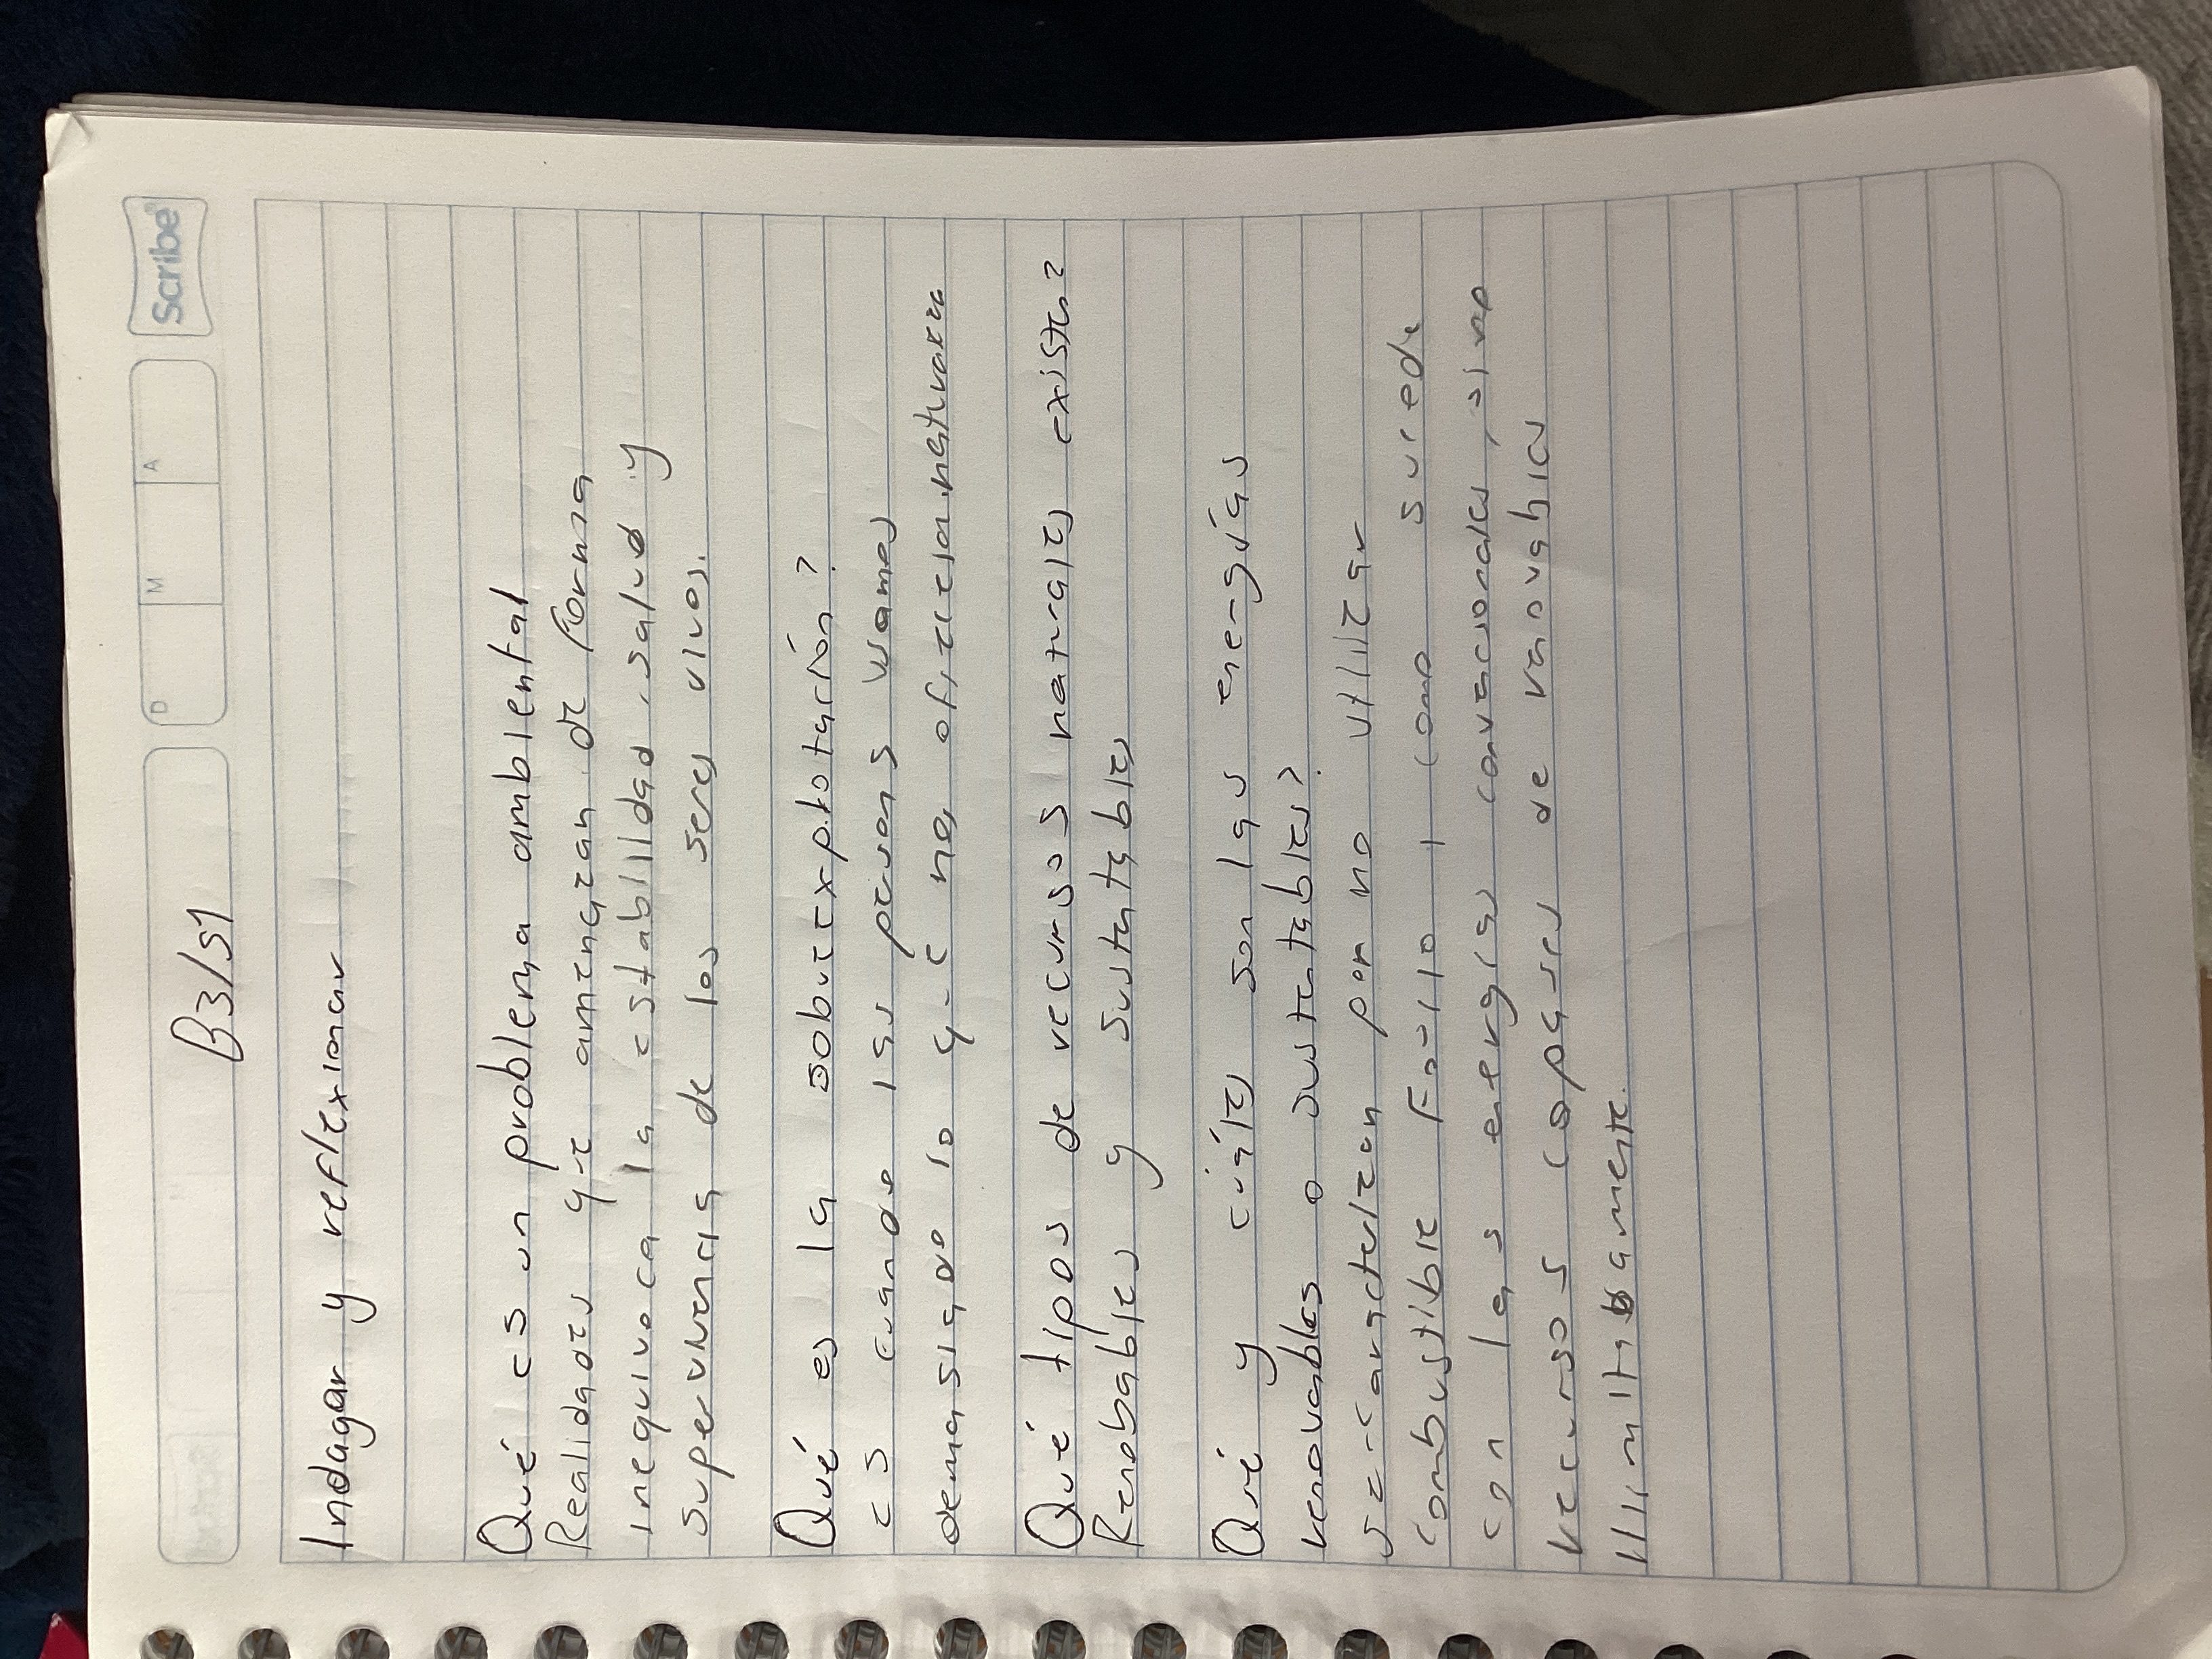 Scribe
D M A
B3/S1
Indagar y reflexionar
Qué es un problema ambiental
Realidades que amenazan de forma
inequivoca la estabilidad, salud y
supervivencia de los seres vivos.
Qué es la sobreexplotación?
es cuando las personas usamos
demasiado lo que nos ofrece la naturaleza
Qué tipos de recursos naturales existen?
Renobables y sustentables
Qué y cuáles son las energías
renovables o sustentables?
se caracterizan por no utilizar
combustible como sucede
con las energias convencionales, sino
recursos capases de renovables
ilimitadamente.